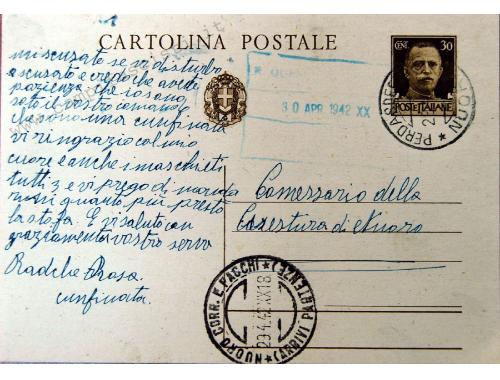 CARTOLINA POSTALE
CENT. 30
POSTE ITALIANE
30 APR 1942 XX
miscusate se vi disturbo
escusate e credo che avete
pazienza che io sang
soto il vostro comando
che sono una cunfinata
vi ringrazio col mio
cuore e anche i maschietti
tutti 3 e vi prego di manda
rmi quanto più presto
la stofa. E vi saluto con
graziamento vostro servo
Radiche Rosa
cunfinata.
Comessario della
Cuestura di Nuoro
NUORO CORR. E PACCHI (ARRIVI PARTENZE)
29.4.42.XX 18